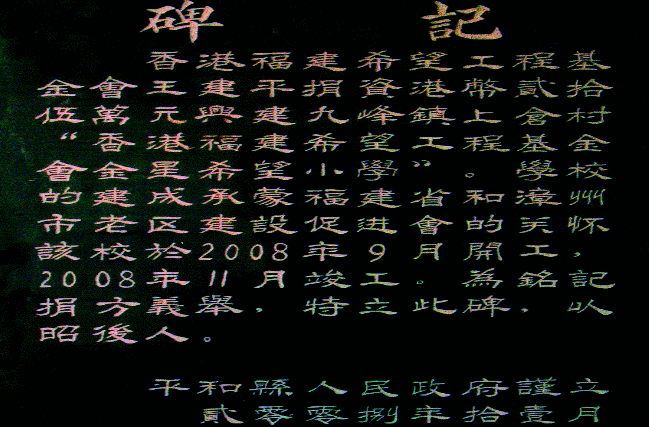 碑記
香港福建希望工程基
金會王建平捐資港幣貳拾
伍萬元興建九峰鎮上倉村
“香港福建希望工程基金
會金星希望小學”。學校
的建成承蒙福建省和漳州
市老区建設促進會的关怀
該校於2008年9月開工，
2008年11月竣工。為銘記
捐方義舉，特立此碑，以
昭後人。
平和縣人民政府謹立
貳零零捌年拾壹月